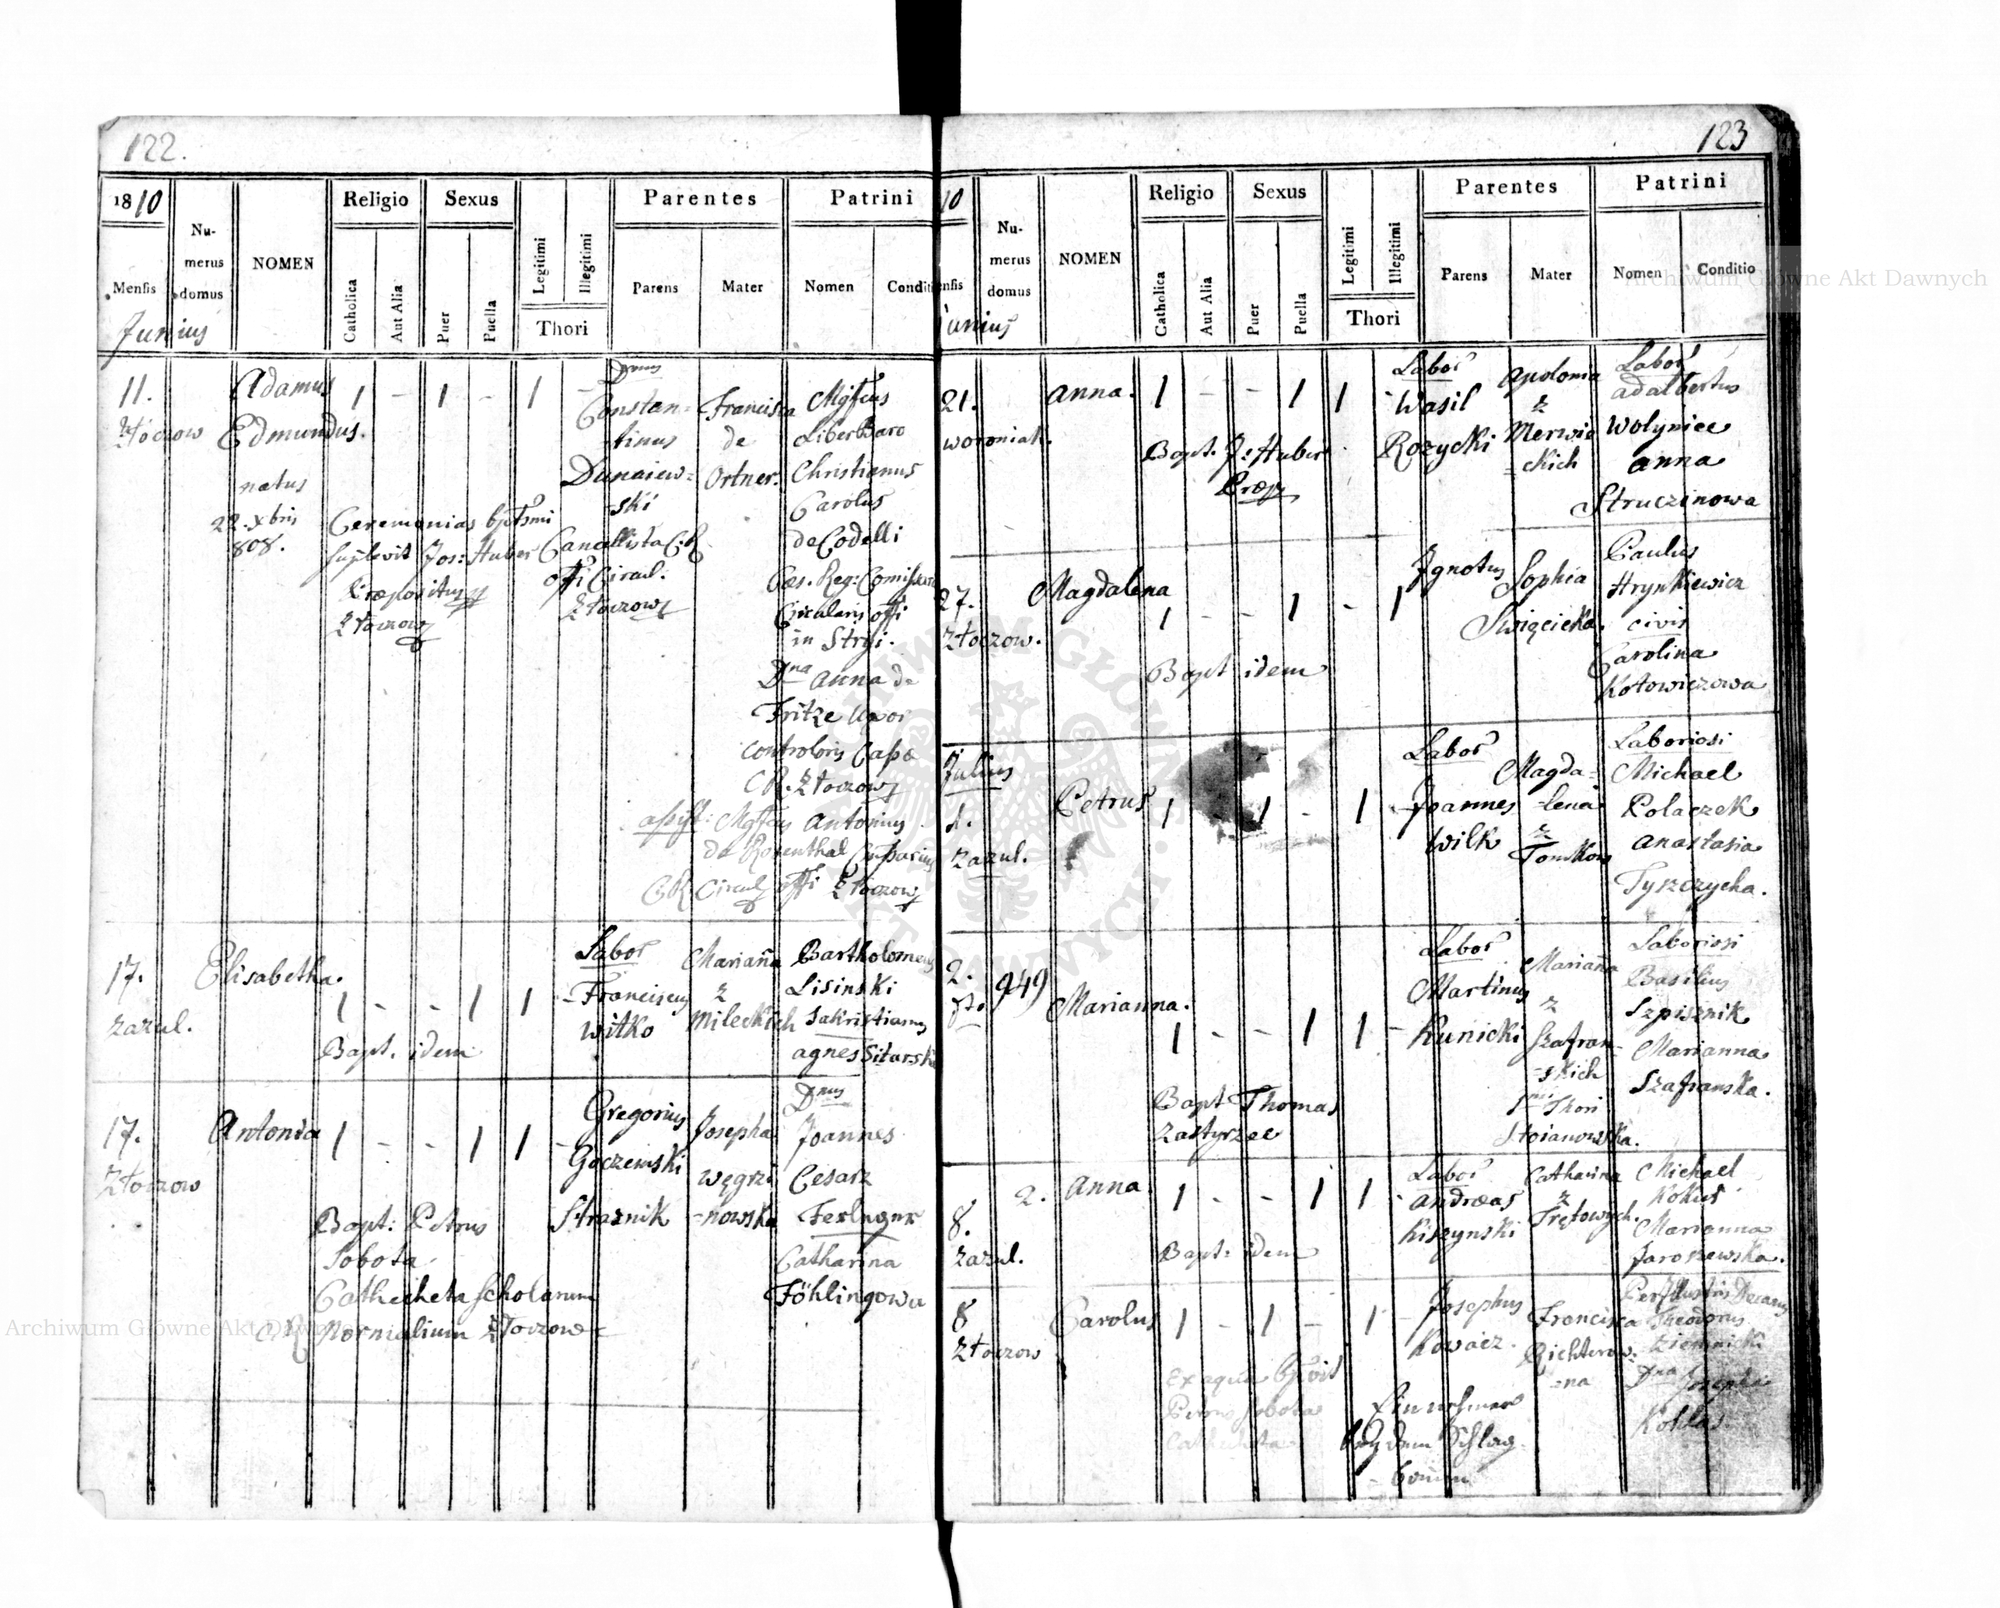 122.
1810
Mensis
Junius
Numerus domus
NOMEN
Religio
Catholica
Aut Alia
Sexus
Puer
Puella
Legitimi
Illegitimi
Thori
Parentes
Parens
Mater
Patrini
Nomen
Conditi
11.
Złoczow
Adamus
Edmundus.
natus
22. Xbris
808.
1 - 1 - 1 -
Ceremonias bptsmi
suplevit Jos: Huber
Præpositus
Złoczow
Dnus
Constan-
tinus
Dunaiew-
ski
Cancellista C.R.
offi Circul.
Złoczow
Francisca
de
Ortner.
Mgfcus
Liber Baro
Christianus
Carolus
de Codelli
Cæs. Reg: Comissari
Circularis offi
in Stryi.
Dna Anna de
Fritze Uxor
Controloris Cassæ
C.R. Złoczow
assist: Mgfcus Antonius
de Rosenthal
C.R. Circul offi Złoczow
17.
Zazul.
Elisabetha.
1 - - 1 1 -
Bapt. idem
Labor
Franciscus
Witko
Marianna
z
Mileckich
Bartholomeus
Lisinski
Sakristianus
Agnes Sitarska
17.
Złoczow
Antonia
1 - - 1 1 -
Bapt: Petrus
Sobota
Catheheta Scholarum
CR Normalium Złoczow
Gregorius
Goczewski
Straznik
Josepha
Węgrzi
=nowska
Dnus
Joannes
Cesarz
Catharina
Föhlingowa
123
10
ensis
Junius
Numerus domus
NOMEN
Religio
Catholica
Aut Alia
Sexus
Puer
Puella
Legitimi
Illegitimi
Thori
Parentes
Parens
Mater
Patrini
Nomen
Conditio
21.
Woroniak.
Anna.
1 - - 1 1
Bapt. J: Huber
Præp
Labor
Wasil
Rozycki
Apolonia
z
Merwic
=ckich
Labor
Adalbertus
Wolyniec
Anna
Struczinowa
27.
Złoczow.
Magdalena
1 - - 1 - 1
Bapt idem
Ignotus
Sophia
Swięcicka.
Paulus
Hrynkiewicz
civis
Carolina
Kotowiczowa
Julius
1.
Zazul.
Petrus
1 1 - 1 -
Labor
Joannes
Wilk
Magda-
lena
z
Tomkow
Laboriosi
Michael
Polaczek
Anastasia
Tyszczycha.
2.
949
Marianna.
1 - - 1 1 -
Bapt Thomas
Zastyrzec
Labor
Martinus
Kunicki
Marianna
z
Szafran-
=skich
1mi Thori
Stoianowska.
Laboriosi
Basilius
Szpisznik
Marianna
Szafranska.
8.
Zazul.
2.
Anna
1 - - 1 1
Bapt: idem
Labor
Andræas
Kiszynski
Catharina
z
Trętowych.
Michael
Kokus
Marianna
Jaroszewska.
8
Złoczow
Carolus
1 - 1 - 1
Ex aqua bptvit
Petrus Sobota
Catheheta
Josephus
Kowacz.
Einnehmer
bey dem Schlag-
Francisca
Richterow-
=na
Perillustris Decanus
Theodorus
Dna Josepha
Archiwum Główne Akt Dawnych
Archiwum Główne Akt Dawnych
ARCHIWUM GŁÓWNE AKT DAWNYCH